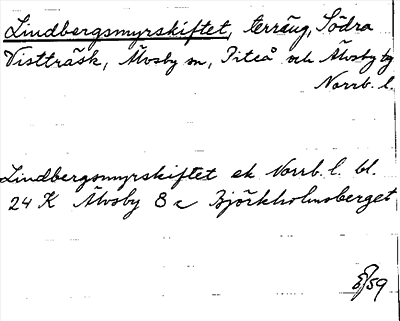 Lindbergsmyrskiftet, terräng, Södra
Vistträsk, Älvsby sn, Piteå och Älvsby tg
Norrb. l.
Lindbergsmyrskiftet ek Norrb. l. bl.
24 K Älvsby 8 c Björkholmsberget
/59